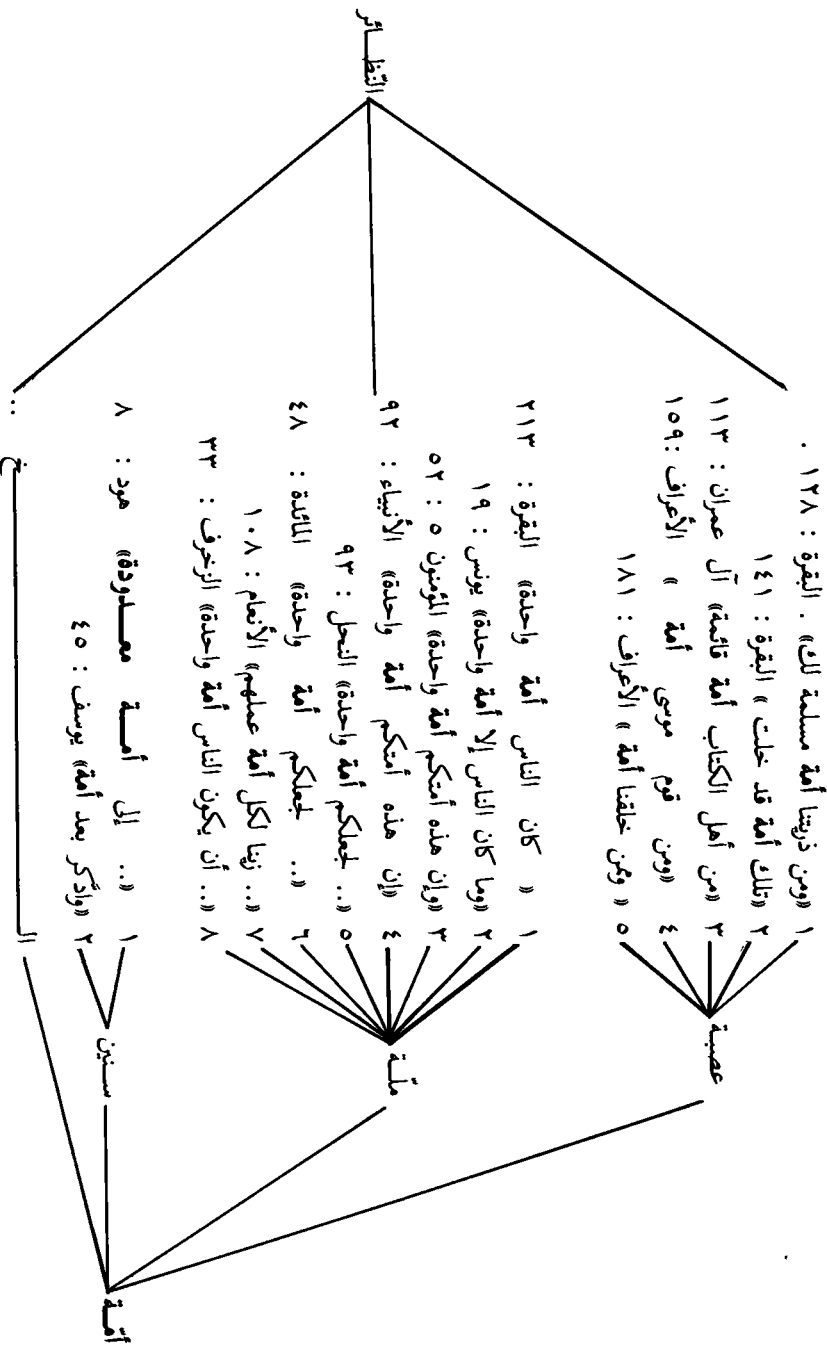 أمّة
عصبة
١ «ومن ذريتنا أمة مسلمة لك» . البقرة : ١٢٨ .
٢ «تلك أمة قد خلت » البقرة : ١٤١
٣ «من أهل الكتاب أمة قائمة» آل عمران : ١١٣
٤ «ومن قوم موسى أمة » الأعراف : ١٥٩
٥ « وممن خلقنا أمة » الأعراف : ١٨١
ملّة
١ « كان الناس أمة واحدة» البقرة : ٢١٣
٢ «وما كان الناس إلا أمة واحدة» يونس : ١٩
٣ «وإن هذه أمتكم أمة واحدة» المؤمنون ٥ : ٥٢
٤ «إن هذه أمتكم أمة واحدة» الأنبياء : ٩٢
٥ «.. لجعلكم أمة واحدة» النحل : ٩٣
٦ «.. لجعلكم أمة واحدة» المائدة : ٤٨
٧ «.. زينا لكل أمة عملهم» الأنعام : ١٠٨
٨ «.. أن يكون الناس أمة واحدة» الزخرف : ٣٣
سنين
١ «.. إلى أمة معدودة» هود : ٨
٢ «وادّكر بعد أمة» يوسف : ٤٥
الخ ..
النّظائر